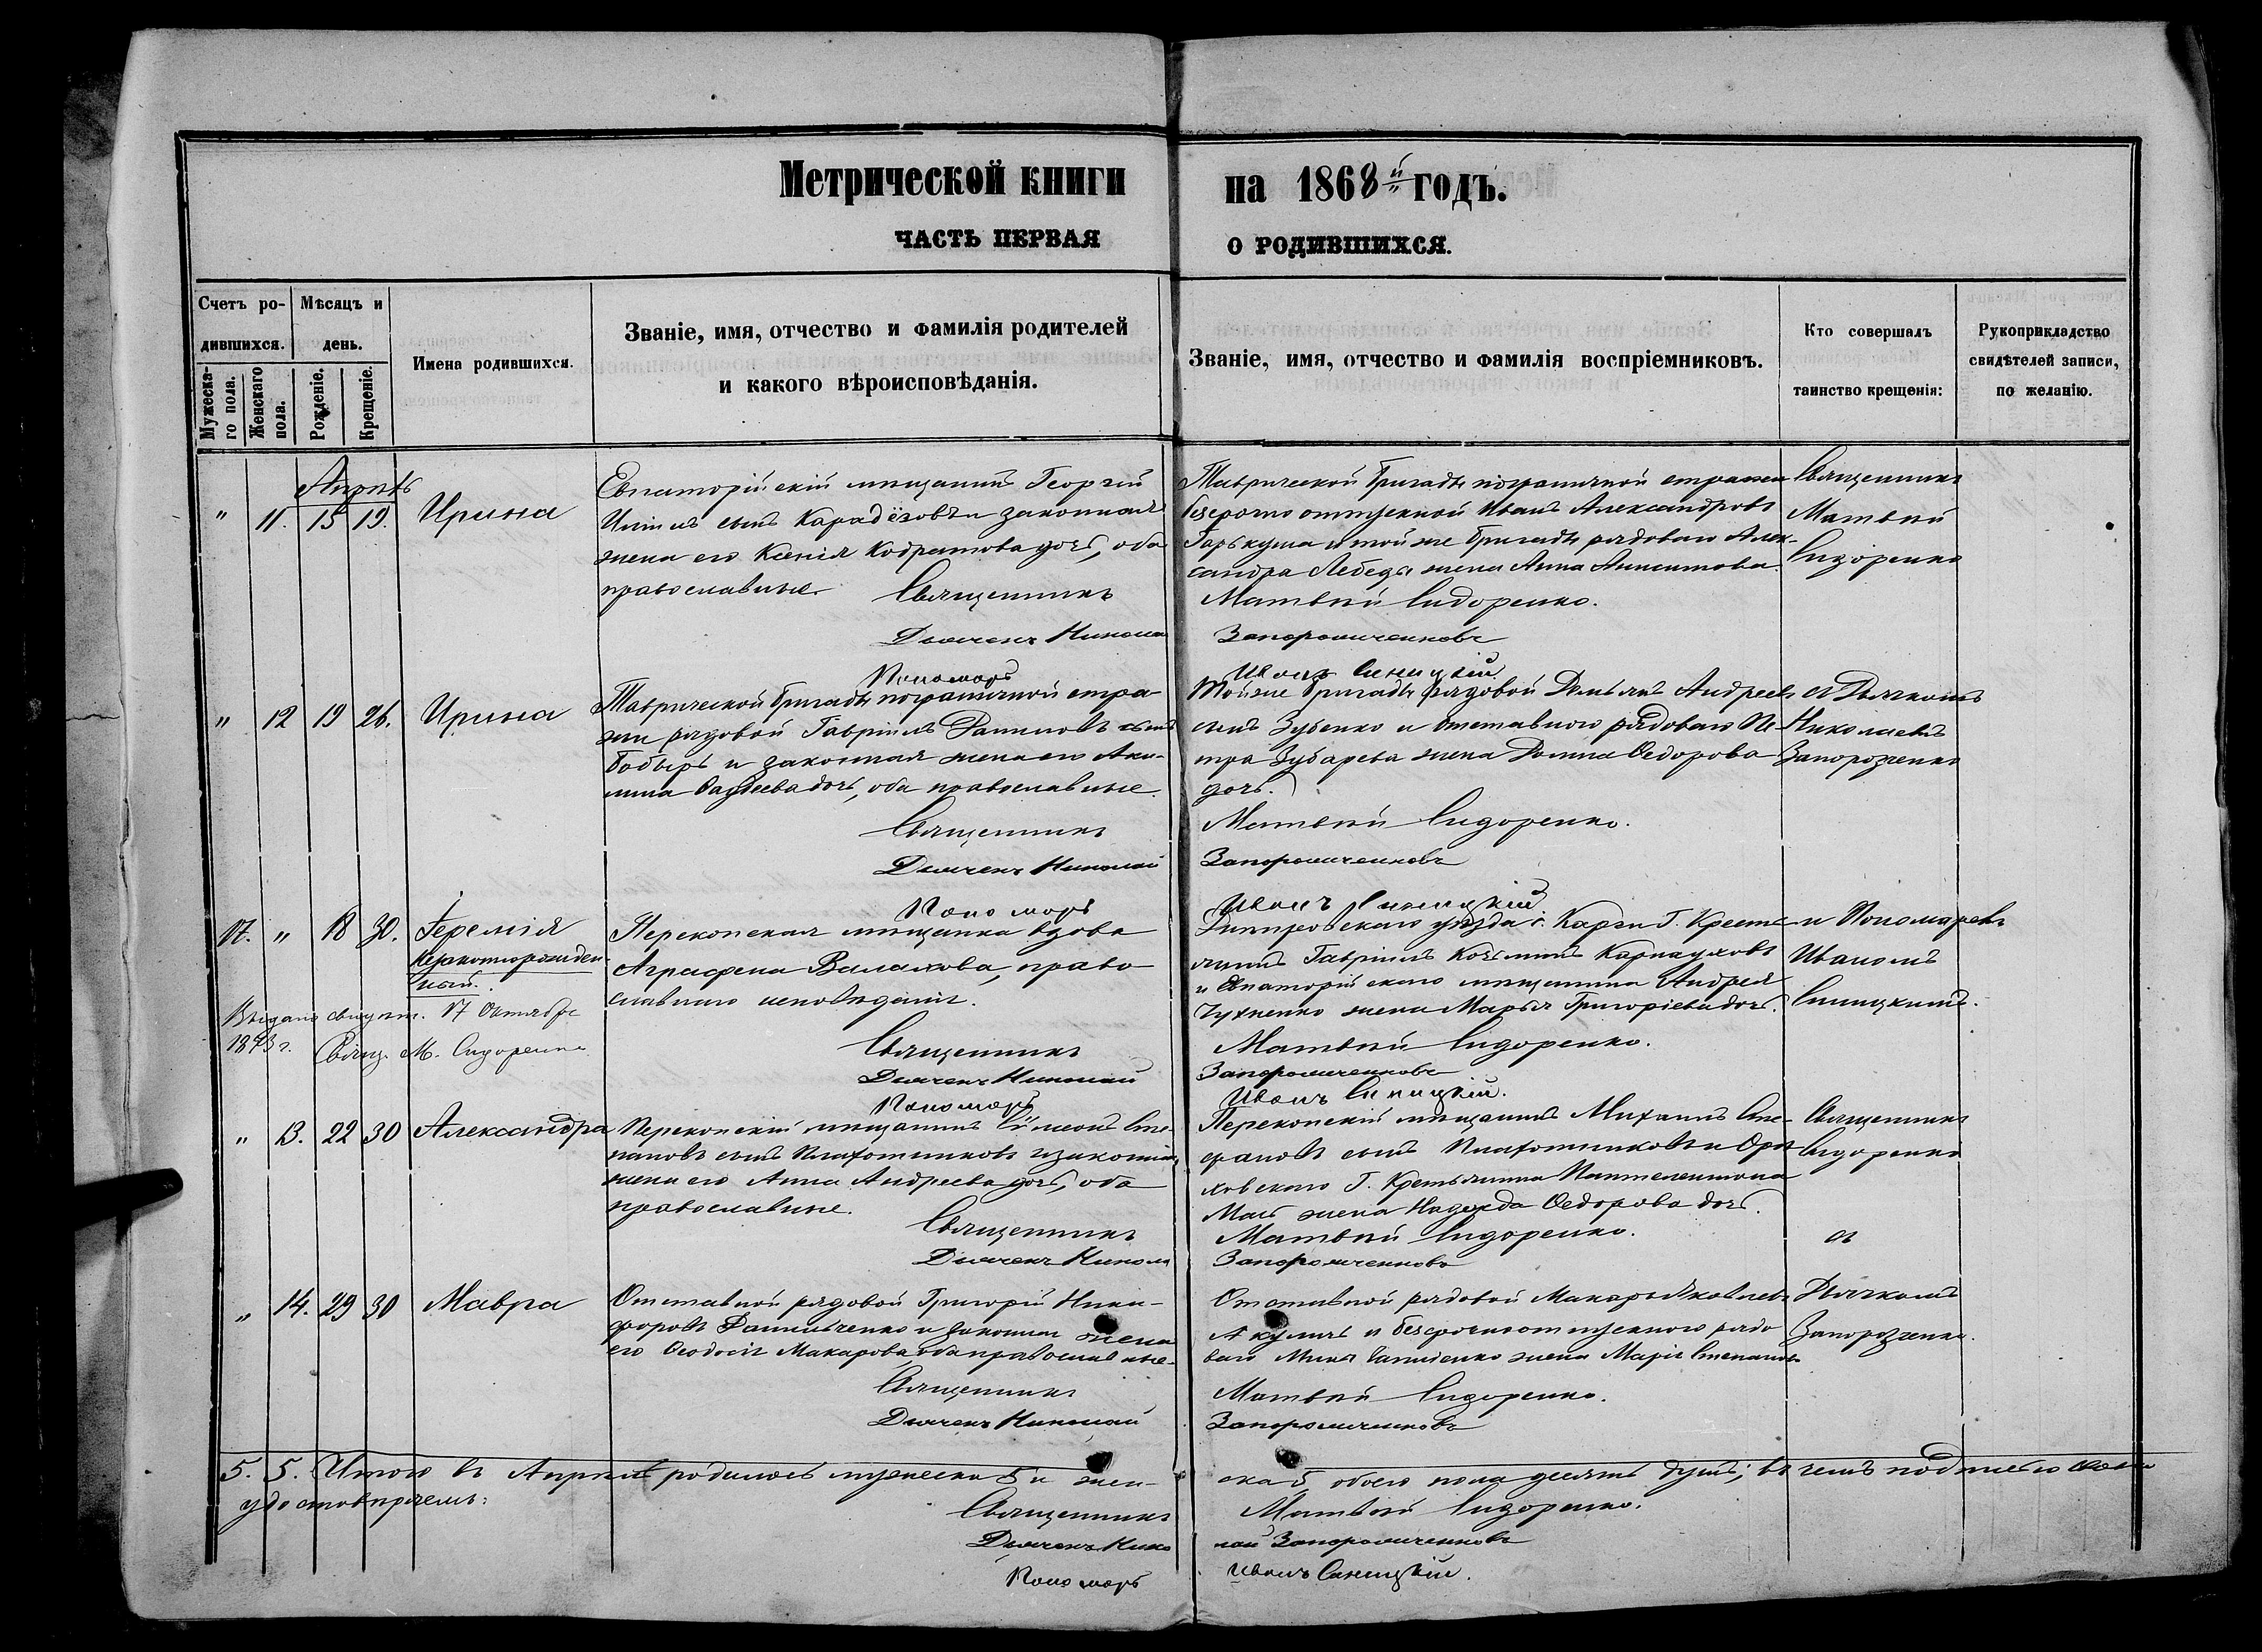 Метрической книги на 1868й годъ.
ЧАСТЬ ПЕРВАЯ О РОДИВШИХСЯ.
Счетъ ро-
дившихся.
Мужеска-
го пола.
Женскаго
пола.
Мѣсяцъ и
день.
Рожденіе.
Крещеніе.
Имена родившихся.
Званіе, имя, отчество и фамилія родителей
и какого вѣроисповѣданія.
Званіе, имя, отчество и фамилія воспріемниковъ.
Кто совершалъ
таинство крещенія:
Рукоприкладство
свидѣтелей записи,
по желанію.
Апрѣль
" 11. 15 19. Ирина
Евпаторійскій мѣщанинъ Георгій
сынъ Карадёзовъ и законная
жена его Ксенія Кодратова дочь, оба
православные.
Священникъ
Дьячекъ Николай
Пономарь
Таврической бригады пограничной стражи
безсрочно отпускной Иванъ Александровъ
Гаркуша и той же бригады рядоваго Алек-
сандра Лебедя жена Анна
Матвѣй Сидоренко.
Запорожченковъ
Иванъ Синицкій.
Священникъ
Матвѣй
Сидоренко
" 12 19 26. Ирина
Таврической бригады пограничной стра-
жи рядовой Гавріилъ Даниловъ сынъ
Бобырь и законная жена его Аки-
лина дочь, оба православные.
Священникъ
Дьячекъ Николай
Пономарь
Той же бригады рядовой Демьянъ Андреевъ
сынъ Зубенко и отставного рядоваго Пе-
тра Зубарева жена Домна Ѳедорова
дочь.
Матвѣй Сидоренко.
Запорожченковъ
Иванъ Синицкій
съ Дьячкомъ
Николаемъ
Запорозченко
17. " 18 30. Іеремія
незаконнорожден-
ный.
Выдано свидѣт. 17 Октября
1873 г. Свящ. М. Сидоренко
Перекопская мѣщанка вдова
Аграфена Валахова, право-
славнаго исповѣданія.
Священникъ
Дьячекъ Николай
Пономарь
Днѣпровскаго уѣзда с. Карги Г. Крестья-
нинъ Гавріилъ Козьминъ Карнауховъ
и Евпаторійскаго мѣщанина Андрея
Чухненко жена Марья Григоріева дочь.
Матвѣй Сидоренко.
Запорожченковъ
Иванъ Синицкій.
и Пономаремъ
Иваномъ
Синицкимъ.
" 13. 22 30 Александра
Перекопскій мѣщанинъ Сѵмеонъ Сте-
пановъ сынъ Плахотниковъ и законная
жена его Анна Андреева дочь, оба
православные.
Священникъ
Дьячекъ Николай
Перекопскій мѣщанинъ Михаилъ Сте-
фановъ сынъ Плахотниковъ и Орѣ-
ховскаго Г. Крестьянина Пантелеимона
жена Надежда Ѳедорова дочь.
Матвѣй Сидоренко.
Запорожченковъ
Священникъ
Сидоренко
съ
" 14. 29 30 Мавра
Отставной рядовой Григорій Ники-
форовъ Данильченко и законная жена
его Ѳеодосія Макарова, оба православные.
Священникъ
Дьячекъ Николай
Отставной рядовой Макарый Яковлевъ
Акулич и безсрочноотпускного рядо
ваго Мины жена Марія Степанова
Матвѣй Сидоренко.
Запорожченковъ
Дьячкомъ
Запорозченко.
5. 5. Итого въ Апрѣлѣ родилось мужеска 5 и жен-
ска 5, обоего пола десять душъ; въ чемъ подписью своею
удостовѣряемъ:
Священникъ Матвѣй Сидоренко.
Дьячекъ Николай Запорожченковъ
Пономарь Иванъ Синицкій.